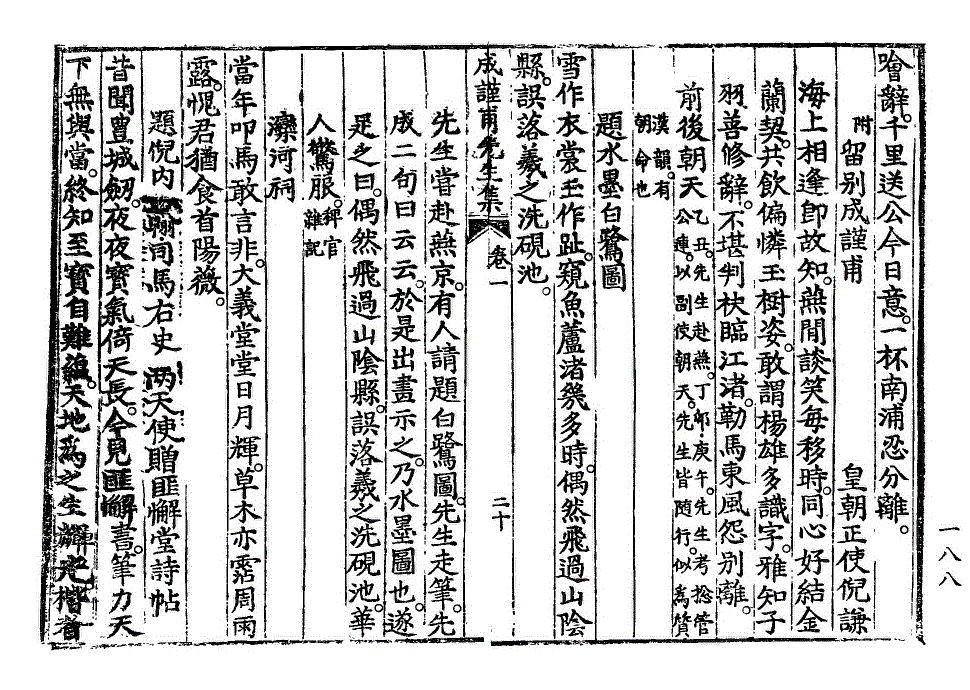 噲辭。千里送公今日意。一杯南浦忍分離。
附 留别成謹甫 皇朝正使倪謙
海上相逢卽故知。燕閒談笑每移時。同心好結金
蘭契。共飮偏憐玉樹姿。敢謂楊雄多識字。雅知子
羽善修辭。不堪判袂臨江渚。勒馬東風怨别離。
前後朝天
乙丑。先生赴燕。丁卯·庚午。先生考捴管
公連。以副使朝天。先生皆随行。似爲質
漢韻。有
朝命也
題水墨白鷺圖
雪作衣裳玉作趾。窺魚蘆渚幾多時。偶然飛過山陰
縣。誤落羲之洗硯池。
成謹甫先生集 卷一 二十
先生嘗赴燕京。有人請題白鷺圖。先生走筆。先
成二句曰云云。於是出畫示之。乃水墨圖也。遂
足之曰。偶然飛過山陰縣。誤落羲之洗硯池。華
人驚服。
稗官
雜記
灤河祠
當年叩馬敢言非。大義堂堂日月輝。草木亦霑周雨
露。愧君猶食首陽薇。
題倪内翰司馬右史 两天使贈匪懈堂詩帖
昔聞豊城劒。夜夜寳氣倚天長。今見匪懈書。筆力天
下無與當。終知至寳自難蘊。天地爲之生
一八八